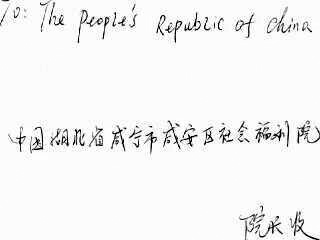 To: The People's Republic of China
中国湖北省咸宁市咸安区社会福利院
院长收